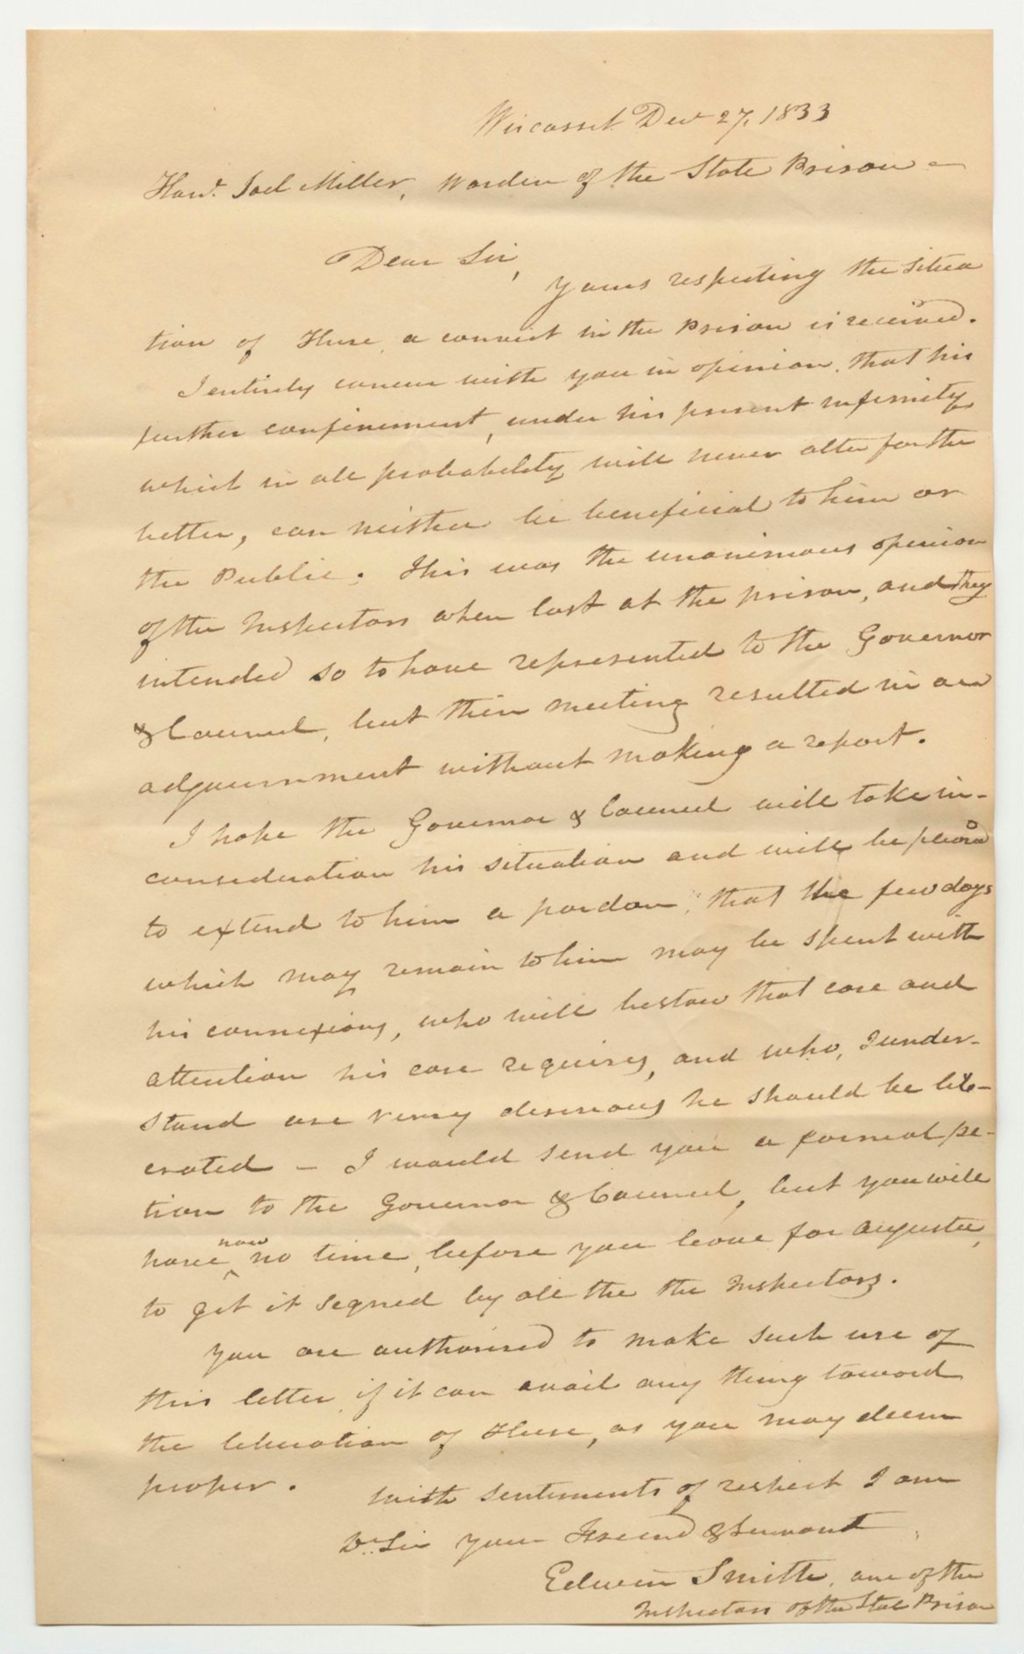 Wiscasset Dec 27, 1833
Hon. Joel Miller, Warden of the State Prison –
Dear Sir,
Yours respecting the situa
tion of Huse, a convict in the Prison is received.
I entirely concur with you in opinion, that his
further confinement, under his present infirmity,
which in all probability will never alter for the
better, can neither be beneficial to him or
the Public. This was the unanimous opinion
of the Inspectors when last at the prison, and they
intended so to have represented to the Governor
& Council, but their meeting resulted in an
adjournment without making a report.
I hope the Governor & Council will take in-
consideration his situation and will be
to extend to him a pardon, that the few days
which may remain to him may be spent with
his connexions, who will bestow that care and
attention his case requires, and who, I under-
stand are very desirous he should be lib-
erated – I would send you a formal pe-
tion to the Governor & Council, but you will
have now no time, before you leave for Augusta,
to get it signed by all the the Inspectors.
You are authorised to make such use of
this letter, if it can avail any thing toward
the liberation of Huse, as you may deem
proper.
With sentiments of respect I am
Dr Sir your Friend & Servant
Edwin Smith, one of the
Inspectors of the State Prison